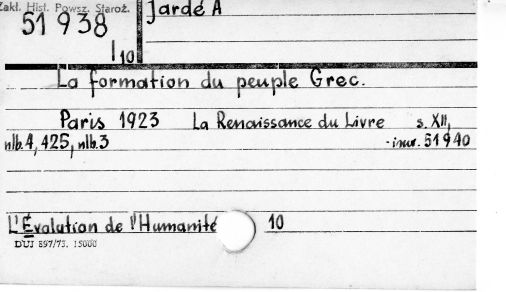 Zakł. Hist. Powsz. Staroż.
Jardé A
51 938
10
La formation du peuple Grec.
Paris 1923 La Renaissance du Livre s. XII,
nlb.4, 425, nlb.3 -inw. 51940
L'Évolution de l'Humanité 10
DUJ 897/75. 15000